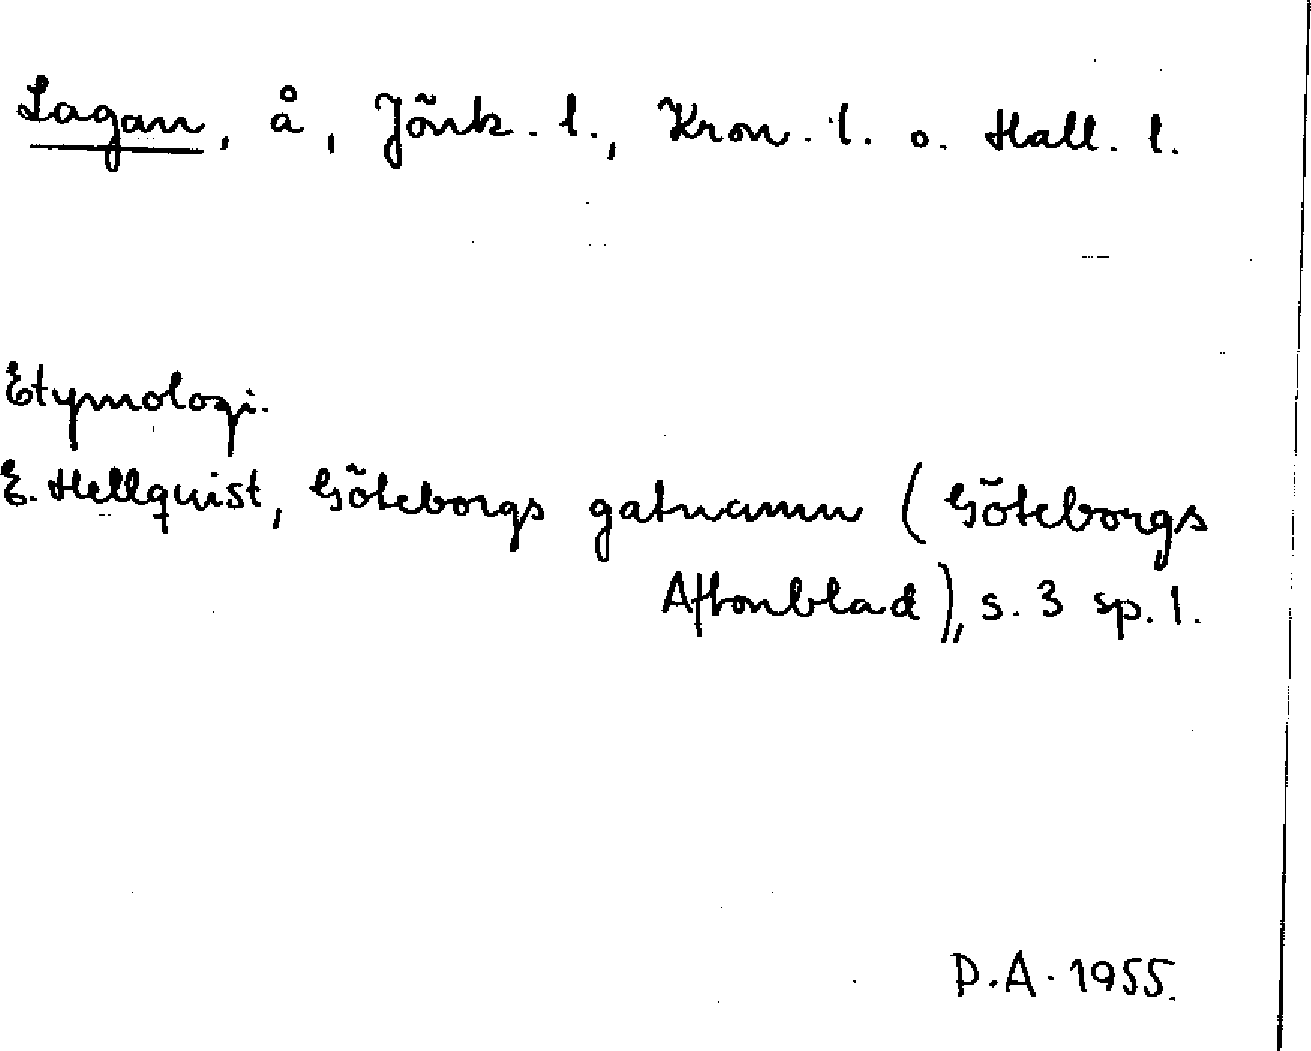 Lagan, å, Jönk. l., Kron. l. o. Hall. l.
Etymologi.
E. Hellquist, Göteborgs gatunamn (Göteborgs
Aftonblad), s. 3 sp. 1.
D.A. 1955.